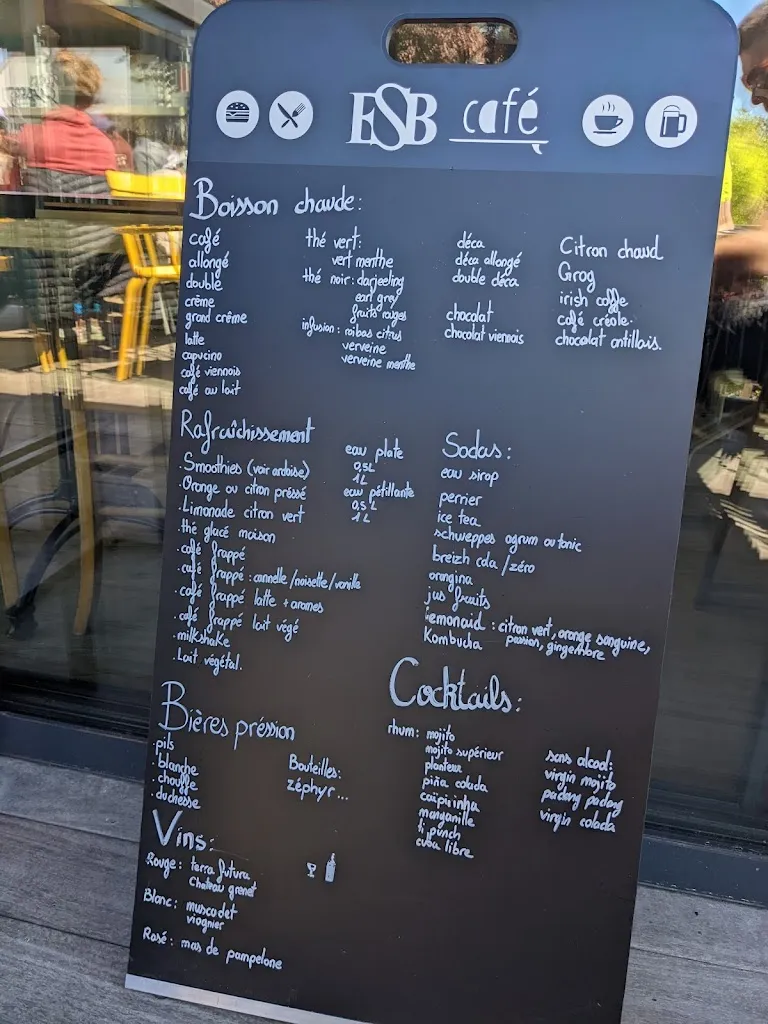 ESB café
Boisson chaude:
café
allongé
double
crème
grand crème
latte
capucino
café viennois
café au lait
thé vert:
vert menthe
thé noir: darjeeling
earl grey
fruits rouges
infusion: roibos citrus
verveine
verveine menthe
déca
déca allongé
double déca
chocolat
chocolat viennois
Citron chaud
Grog
irish coffe
café créole.
chocolat antillais.
Rafraîchissement
.Smoothies (voir ardoise)
.Orange ou citron préssé
.Limonade citron vert
.thé glacé maison
.café frappé
.café frappé: cannelle/noisette/vanille
.café frappé latte + aromes
.café frappé lait végé
.milkshake
.Lait végétal.
eau plate
0,5L
1L
eau pétillante
0,5L
1L
Sodas:
eau sirop
perrier
ice tea
schweppes agrum ou tonic
breizh cola/zéro
orangina
jus fruits
lemonaid: citron vert, orange sanguine,
passion, gingembre
Kombucha
Bières préssion
.pils
.blanche
.chouffe
.duchesse
Bouteilles:
zéphyr...
Cocktails:
rhum: mojito
mojito supérieur
planteur
piña colada
caipirinha
manganille
ti punch
cuba libre
sans alcool:
virgin mojito
padang padang
virgin colada
Vins:
Rouge: terra futura
Chateau grenet
Blanc: muscadet
viognier
Rosé: mas de pampelone